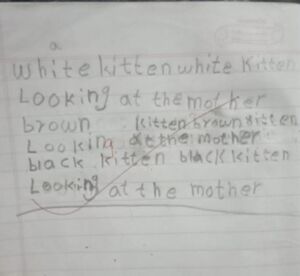 a
white kitten white kitten
Looking at the mother
brown kitten brown kitten
Looking at the mother
black kitten black kitten
Looking at the mother